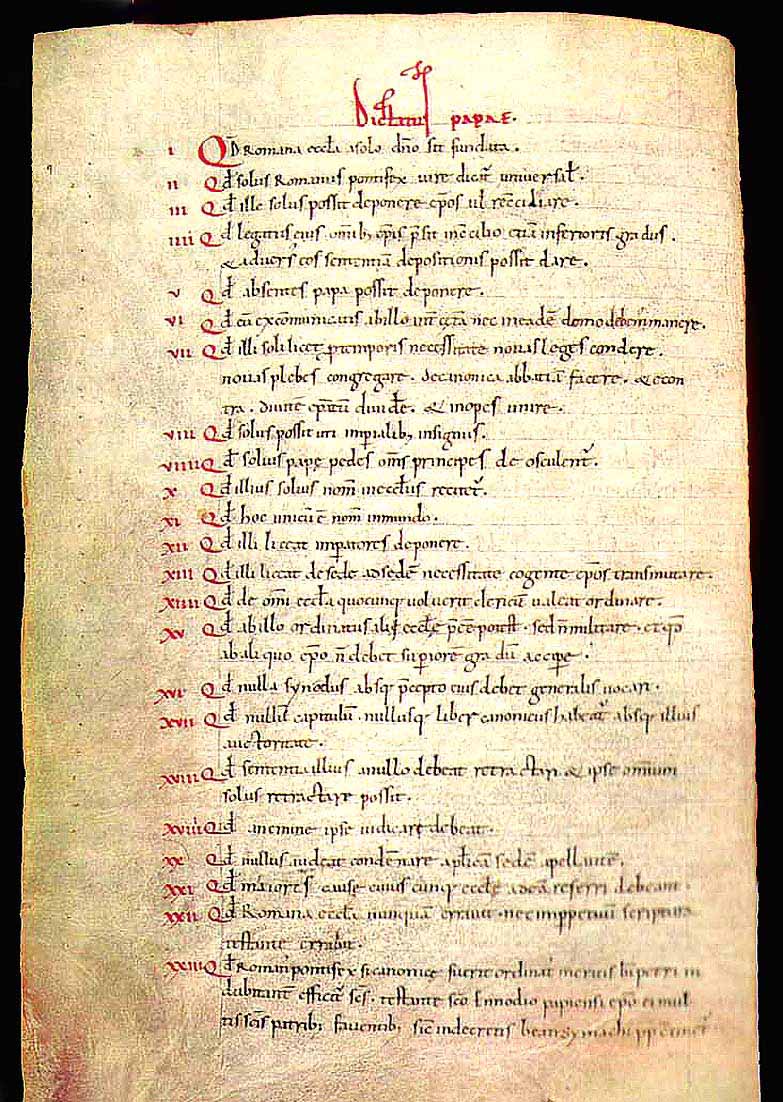 Dictatus papae.
i Qd Romana eccla a solo dno sit fundata.
ii Qd solus Romanus pontifex iure dicat' universal'.
iii Qd ille solus possit deponere epos ul recciliare.
iiii Qd legatus eius omib; epis psit in cōcilio etiā inferioris gradus.
& adversˀ eos sententiā depositionis possit dare.
v Qd absentes papa possit deponere.
vi Qd cū excōmunicatis ab illo int cetā nec in eadē domo debemˀ manere.
vii Qd illi soli licet p temporis necessitate novas leges condere.
novas plebes congregare. de canonica abbatiā facere. & econ
tra. divitē epatū divide. & inopes unire.
viii Qd solus possit uti impialib; insigniis.
viiii Qd solius papę pedes oms principes deosculent'.
x Qd illius solius nom̄ in ecclis recitet'.
xi Qd hoc unicū ē nom̄ in mundo.
xii Qd illi liceat impatores deponere.
xiii Qd illi liceat de sede ad sedē necessitate cogente epos transmutare.
xiiii Qd de omi eccla quocunq; voluerit clericū valeat ordinare.
xv Qd ab illo ordinatus alii ecclę pcē potest. sed n̄ militare. et qd
ab aliquo epo n̄ debet superiorē gradū accipe.
xvi Qd nulla synodus absq; pcepto eius debet generalis vocari.
xvii Qd nullū capitulū. nullusq; liber canonicus habeat' absq; illius
auctoritate.
xviii Qd sententia illius a nullo debeat retractari & ipse omnium
solus retractare possit.
xviiii Qd a nemine ipse iudicare debeat.
xx Qd nullus audeat condēnare aplicā sedē apellantē.
xxi Qd maiores cause cuiuscunq; ecclę ad eā referri debeant.
xxii Qd Romana eccla nunquā erravit. nec imppetuū scriptura
testante errabit.
xxiii Qd Romanˀ pontifex si canonice fuerit ordinatˀ meritis bi petri in
dubitant' efficit' scs. testante sco Ennodio papiensi epo ei mul
tis scis patrib; faventib; sic' in decretis beati symachi pp continet'